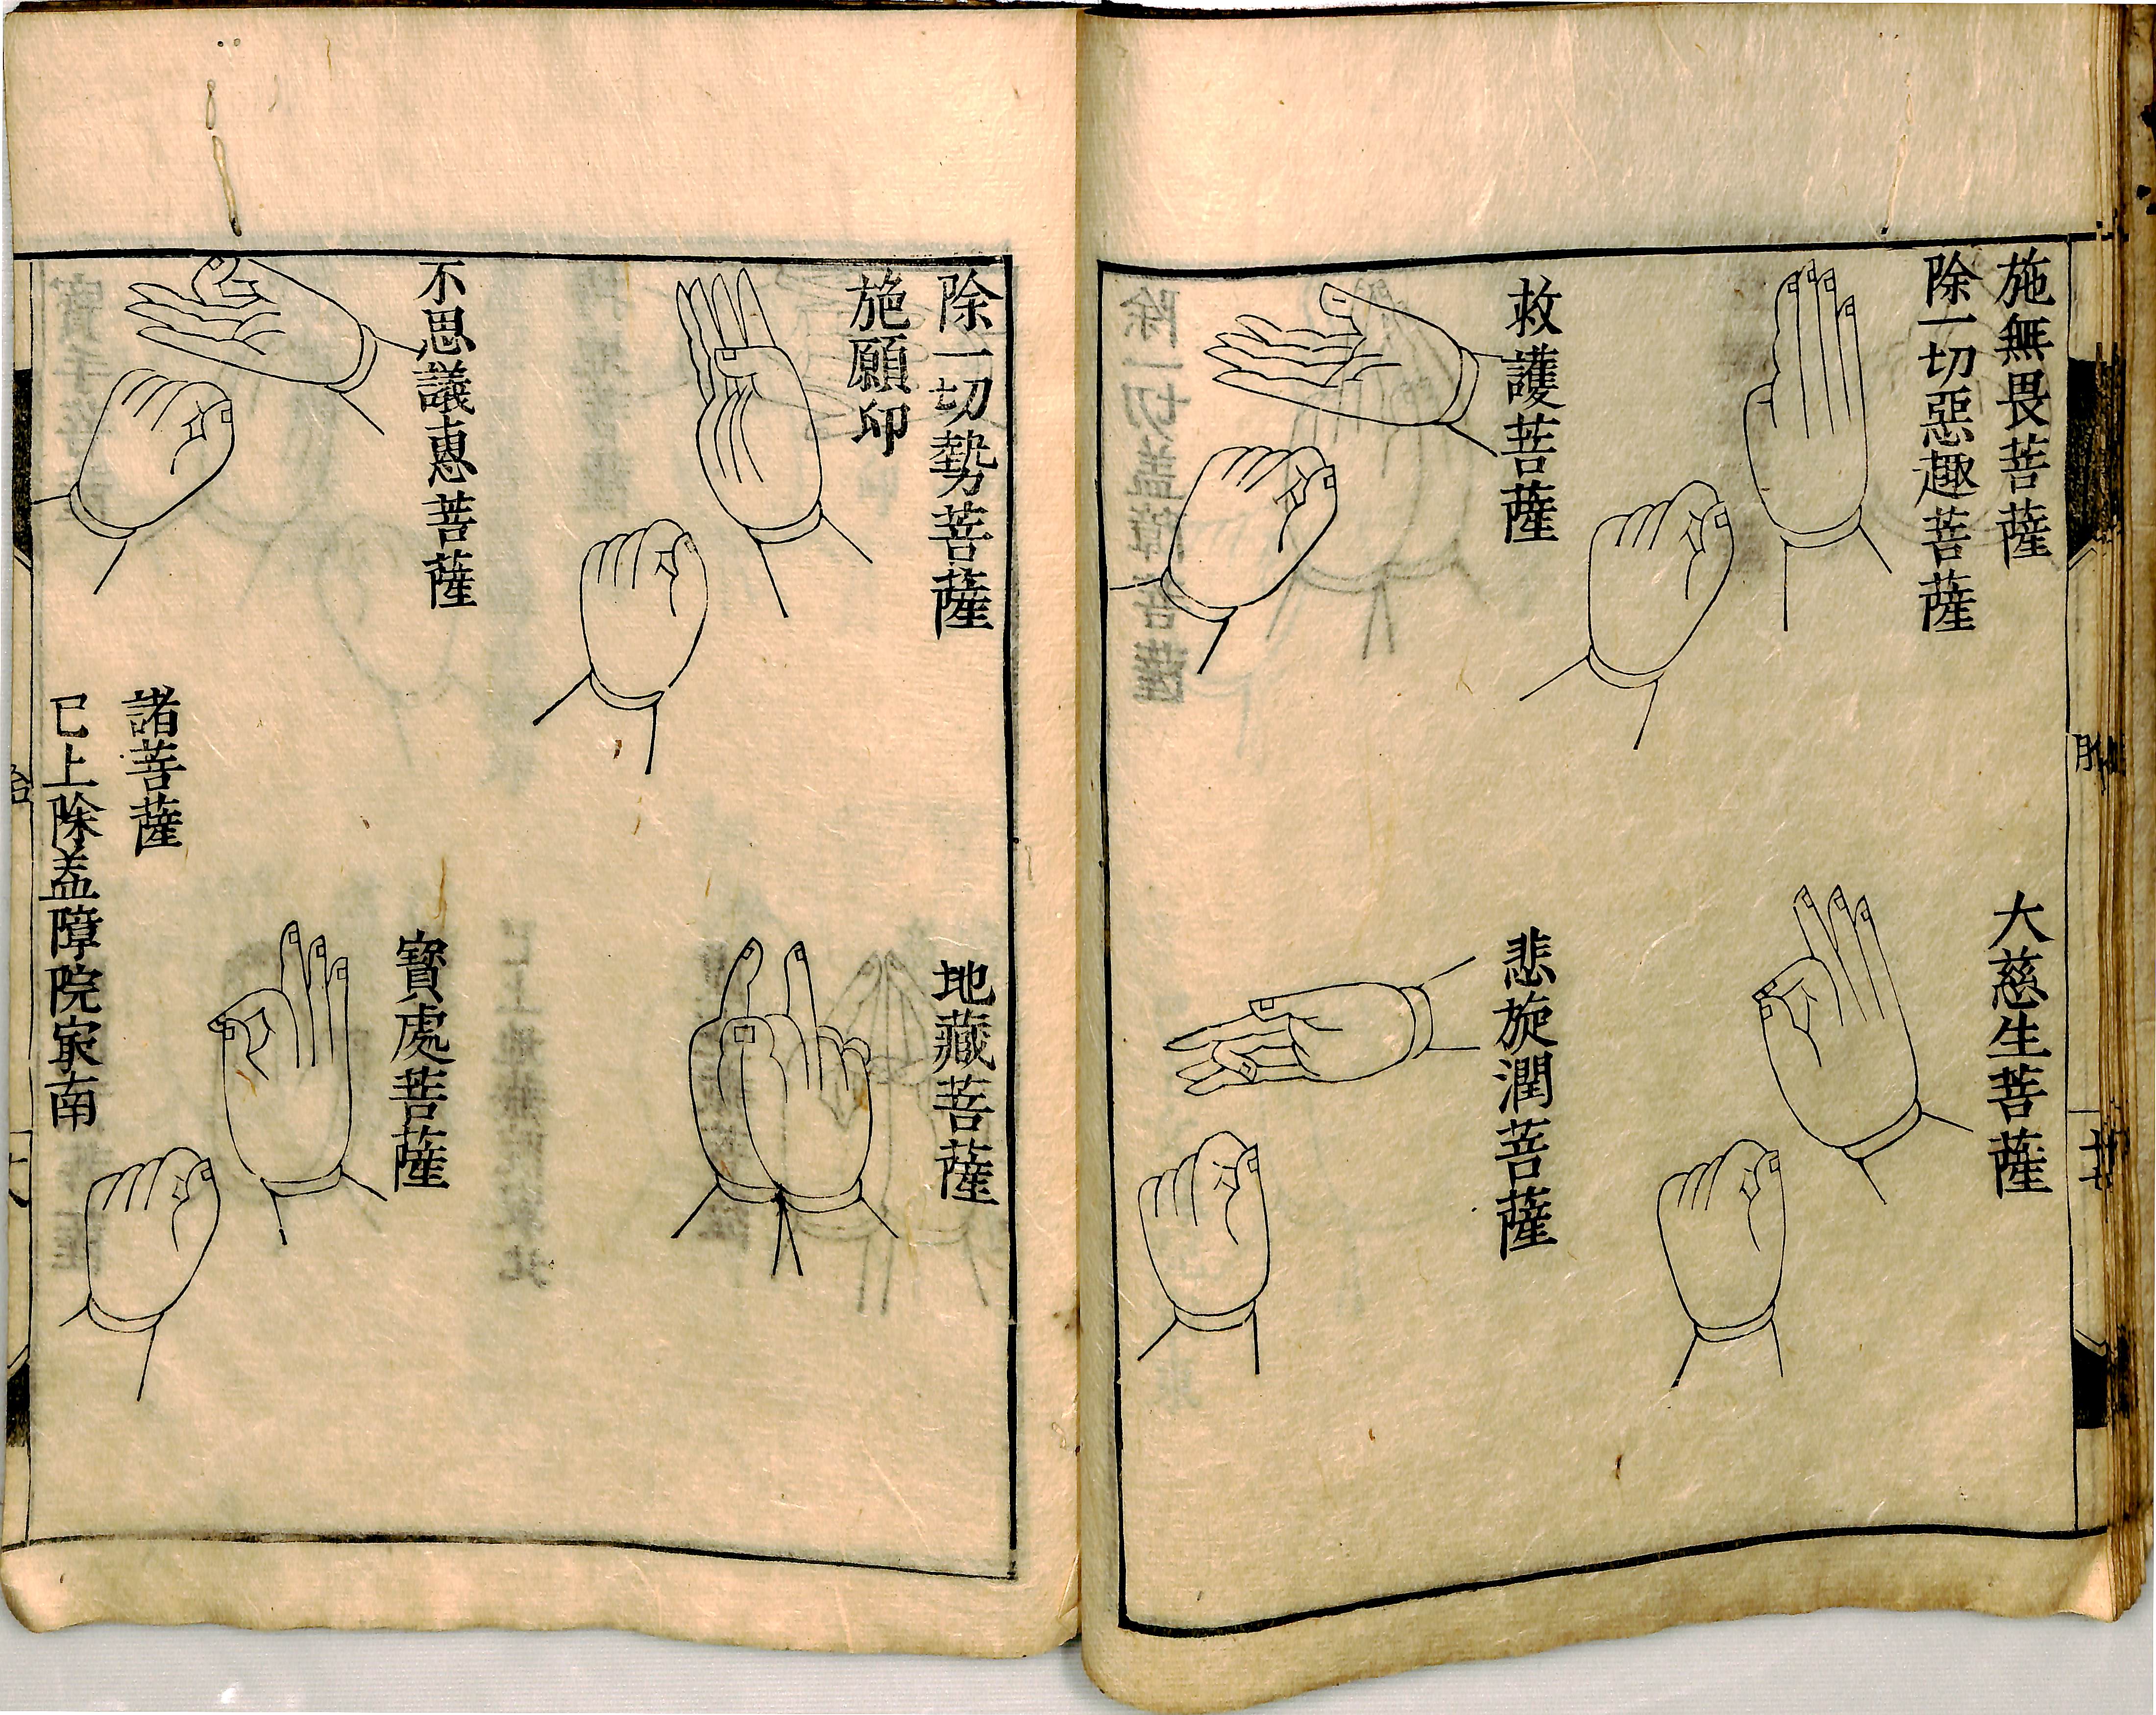 施無畏菩薩
除一切惡趣菩薩
救護菩薩
大慈生菩薩
悲旋潤菩薩
除一切勢菩薩
施願印
不思議惠菩薩
地藏菩薩
寶處菩薩
諸菩薩
已上除盖障院㝡南